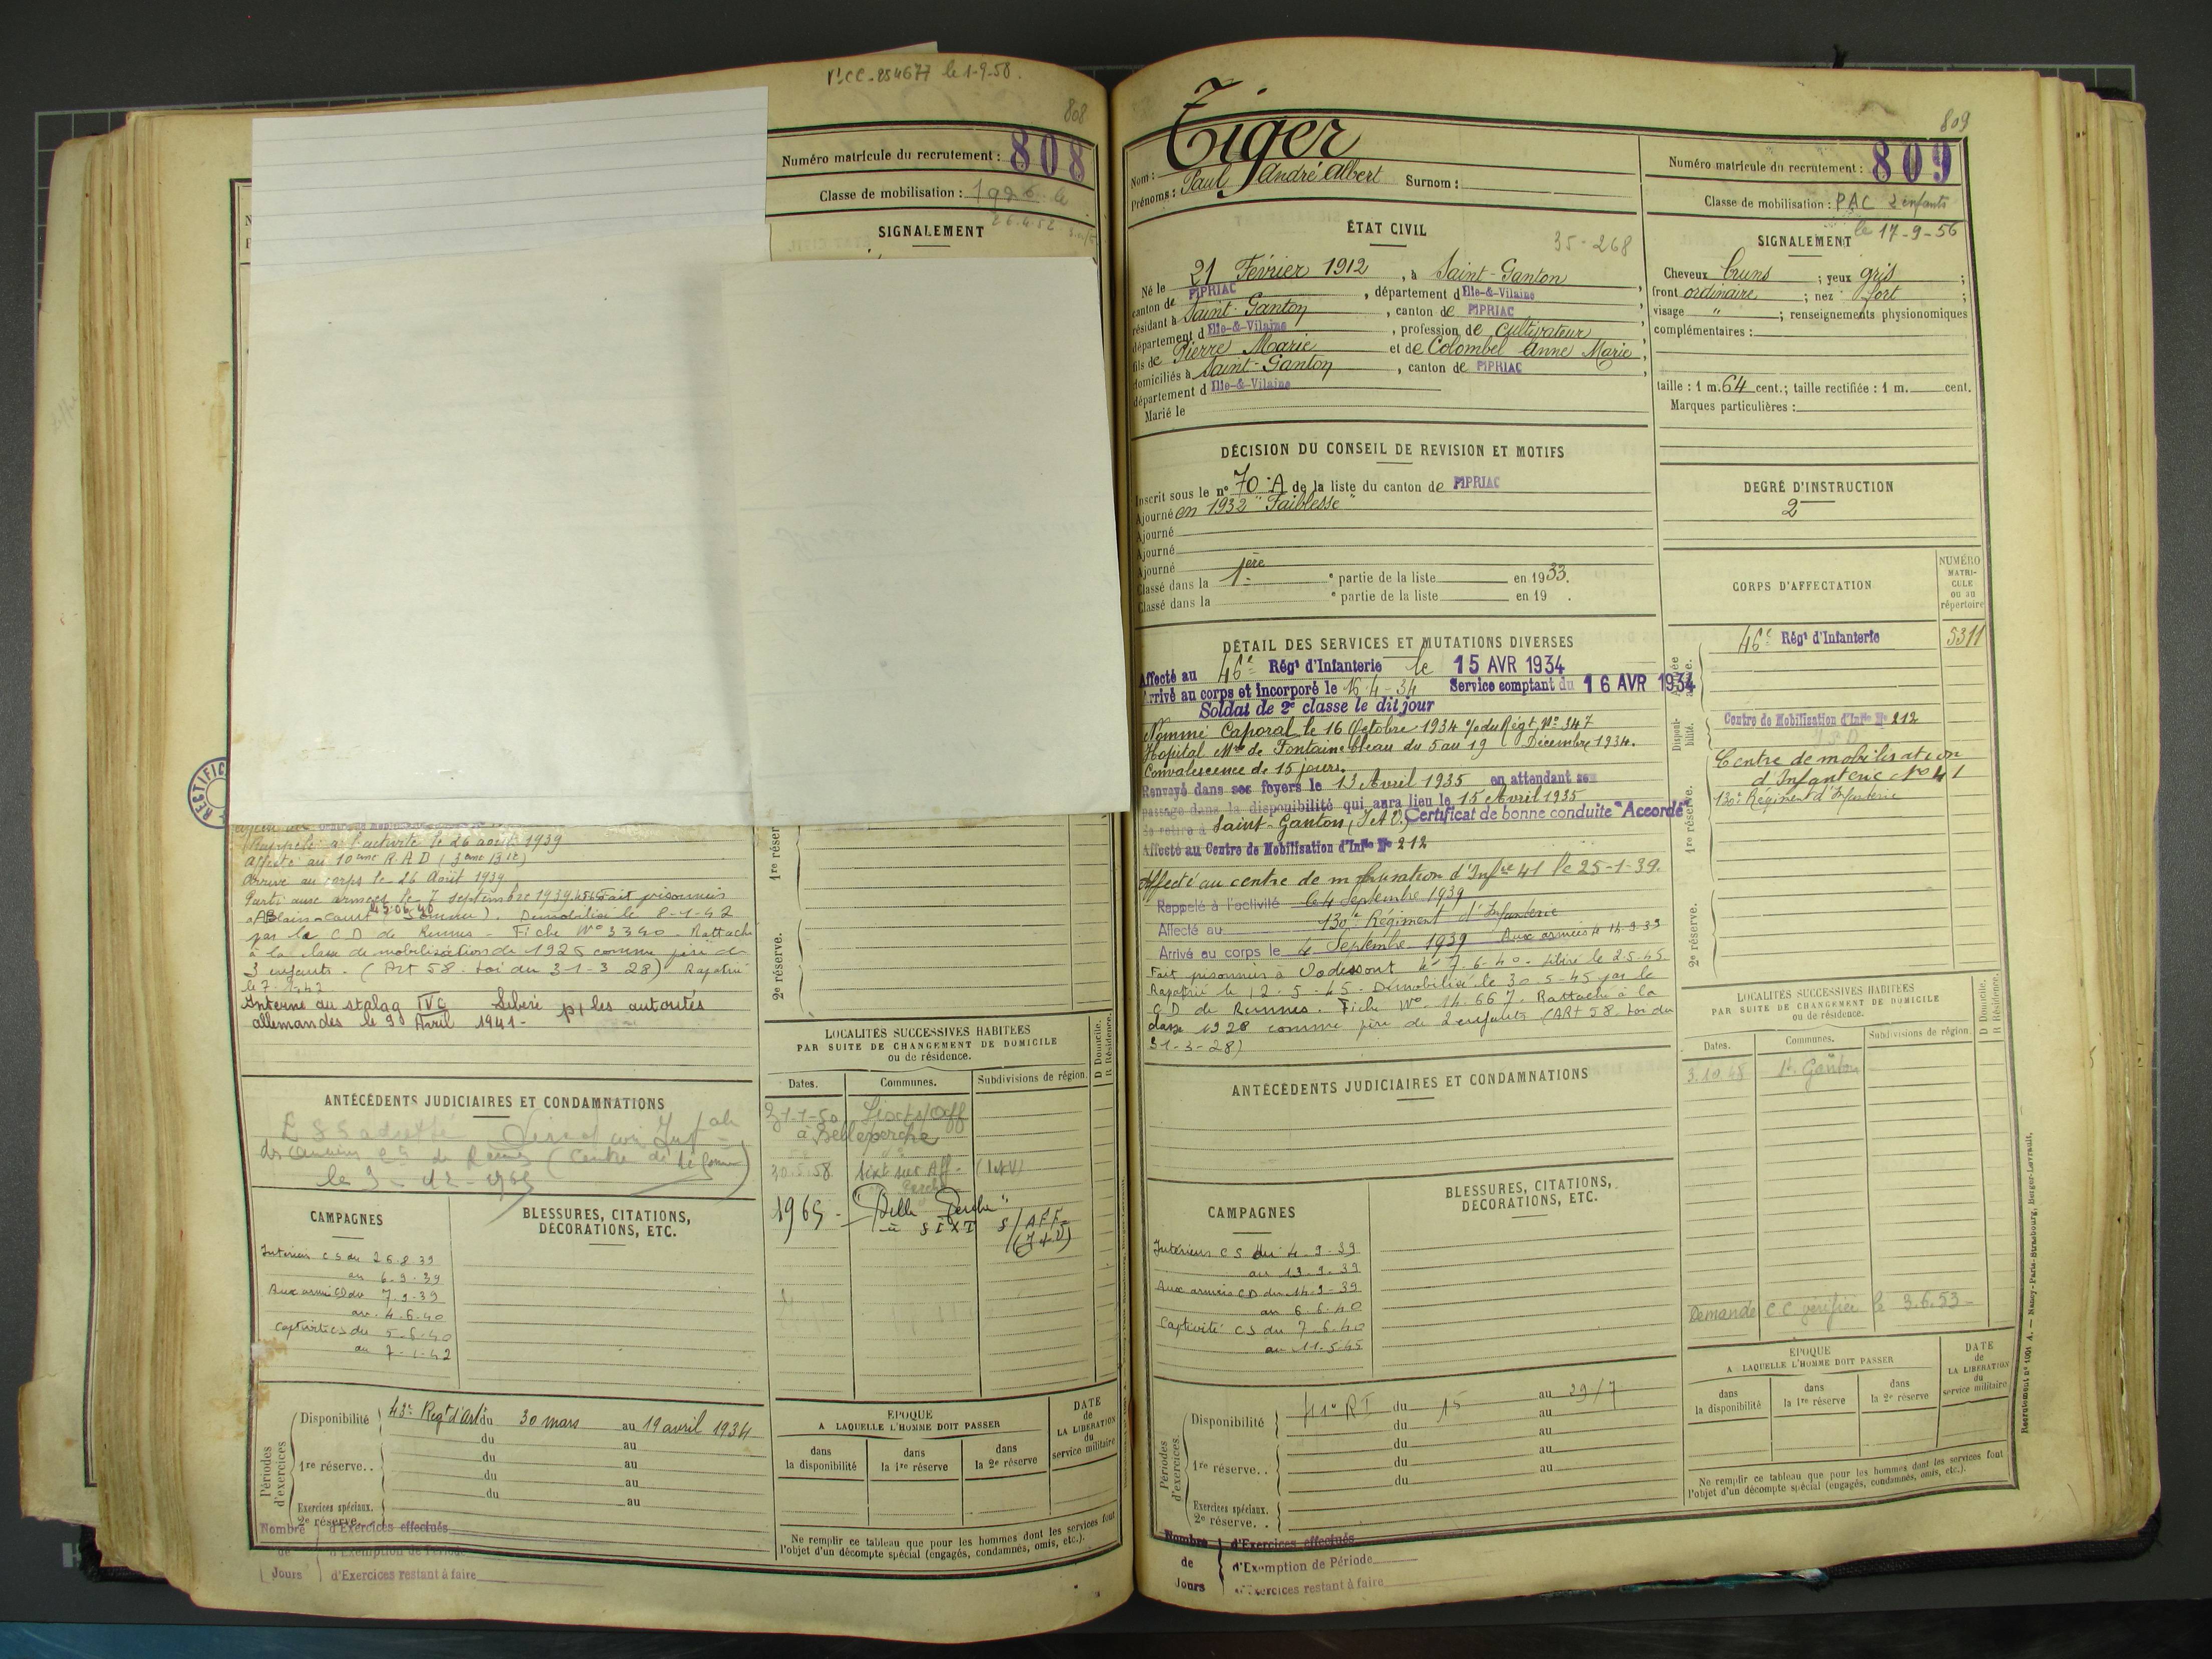 le 1-9-58.
808
Numéro matricule du recrutement : 808
Classe de mobilisation : 1926 le
26.4.52
SIGNALEMENT
RECTIFIC
Rappelé à l'activité le 26 août 1939
Affecté au 10ème R.A.D (3ème Bie)
Arrivé au corps le 26 Août 1939
Parti aux armées le 7 septembre 1939 Fait prisonnier
(Somme). Démobilisé le 8-1-42
par le C D de Rennes - Fiche N° 3340 - Rattaché
à la classe de mobilisation de 1926 comme père de
3 enfants. (Art 58. Loi du 31-3 28) Rapatrié
le 7 1.42
Interné au stalag IVC Libéré p/ les autorités
allemandes le 9 Avril 1941-
ANTÉCÉDENTS JUDICIAIRES ET CONDAMNATIONS
CAMPAGNES
BLESSURES, CITATIONS,
DÉCORATIONS, ETC.
Intérieur C S du 26.8.39
au 6.9.39
Aux armées CD du 7.9.39
au 4.6.40
Captivité CS du 5.6.40
au 7-1-42
Périodes d'exercices.
Disponibilité 43e Régt d'Art du 30 mars au 19 avril 1934
du au
1re réserve.. du au
du au
du au
Exercices spéciaux.
2e réserve. .
Nombre de Jours
d'Exercices effectués
d'Exemption de Période
d'Exercices restant à faire
1re réser
2e réserve.
LOCALITÉS SUCCESSIVES HABITÉES
PAR SUITE DE CHANGEMENT DE DOMICILE
ou de résidence.
D Domicile.
R Résidence.
Dates. Communes. Subdivisions de région.
à Belleperche
30.5.58 Sixt sur Aff- (I&V)
1965 - "Belle Perche"
à SIXT S/AFF
(I&V)
ÉPOQUE
A LAQUELLE L'HOMME DOIT PASSER
dans la disponibilité
dans la 1re réserve
dans la 2e réserve
DATE de LA LIBÉRATION du service militaire
Ne remplir ce tableau que pour les hommes dont les services font
l'objet d'un décompte spécial (engagés, condamnés, omis, etc.).
809
Nom : Tiger
Prénoms : Paul André Albert Surnom :
Numéro matricule du recrutement : 809
Classe de mobilisation : PAC 2 enfants
le 17-9-56
ÉTAT CIVIL
35-268
Né le 21 Février 1912, à Saint-Ganton
canton de PIPRIAC, département d Ille-&-Vilaine,
résidant à Saint-Ganton, canton de PIPRIAC,
département d Ille-&-Vilaine, profession de cultivateur,
fils de Pierre Marie et de Colombel Anne Marie,
domiciliés à Saint-Ganton, canton de PIPRIAC,
département d Ille-&-Vilaine
Marié le
SIGNALEMENT
Cheveux bruns ; yeux gris ;
front ordinaire ; nez fort ;
visage " ; renseignements physionomiques
complémentaires :
taille : 1 m. 64 cent.; taille rectifiée : 1 m. cent.
Marques particulières :
DÉCISION DU CONSEIL DE REVISION ET MOTIFS
Inscrit sous le n° 70 A de la liste du canton de PIPRIAC
Ajourné en 1932 "Faiblesse"
Ajourné
Ajourné
Ajourné
Classé dans la 1ère e partie de la liste en 1933.
Classé dans la e partie de la liste en 19 .
DEGRÉ D'INSTRUCTION
2
CORPS D'AFFECTATION
NUMÉRO MATRICULE ou au répertoire
46e Régt d'Infanterie 5311
Disponibilité.
Centre de Mobilisation d'Infie N° 212
1re réserve.
Centre de mobilisation
d'Infanterie N° 41
130e Régiment d'Infanterie
2e réserve.
DÉTAIL DES SERVICES ET MUTATIONS DIVERSES
Affecté au 46e Régt d'Infanterie le 15 AVR 1934
Arrivé au corps et incorporé le 16-4-34 Service comptant du 16 AVR 1934
Soldat de 2e classe le dit jour
Nommé Caporal le 16 Octobre 1934 % du Régt N° 347
Hopital Mre de Fontainebleau du 5 au 19 Décembre 1934.
Convalescence de 15 jours.
Renvoyé dans ses foyers le 13 Avril 1935 en attendant son
passage dans la disponibilité qui aura lieu le 15 Avril 1935
Se retire à Saint-Ganton, (I et V.) Certificat de bonne conduite "Accordé"
Affecté au Centre de Mobilisation d'Infie N° 212
Affecté au centre de mobilisation d'Infie 41 le 25-1-39.
Rappelé à l'activité le 4 Septembre 1939
Affecté au 130e Régiment d'Infanterie
Arrivé au corps le 4 Septembre 1939 Aux armées le 14.9.39
Fait prisonnier à Vodessont le 7.6-40. Libéré le 2.5-45
Rapatrié le 12-5-45. Démobilisé le 30-5-45 par le
C D de Rennes. Fiche N° 14.667. Rattaché à la
classe 1928 comme père de 2 enfants (ARt 58. Loi du
31-3-28)
ANTÉCÉDENTS JUDICIAIRES ET CONDAMNATIONS
CAMPAGNES
BLESSURES, CITATIONS,
DÉCORATIONS, ETC.
Intérieur C S du 4.9.39
au 13.9.39
Aux armées CD du 14.9-39
au 6.6.40
Captivité CS du 7.6.40
au 11.5.45
LOCALITÉS SUCCESSIVES HABITÉES
PAR SUITE DE CHANGEMENT DE DOMICILE
ou de résidence.
D Domicile.
R Résidence.
Dates. Communes. Subdivisions de région.
3.10.48 St Ganton
Demande C C vérifiée le 3.6.53-
Périodes d'exercices.
Disponibilité 41e RI du 15 au 29/7
du au
du au
1re réserve.. du au
du au
du
Exercices spéciaux.
2e réserve. .
Nombre de Jours
d'Exercices effectués
d'Exemption de Période
d'Exercices restant à faire
ÉPOQUE
A LAQUELLE L'HOMME DOIT PASSER
dans la disponibilité
dans la 1re réserve
dans la 2e réserve
DATE de LA LIBÉRATION du service militaire
Ne remplir ce tableau que pour les hommes dont les services font
l'objet d'un décompte spécial (engagés, condamnés, omis, etc.).
Recrutement n° 1001 A. — Nancy-Paris-Strasbourg, Berger-Levrault.